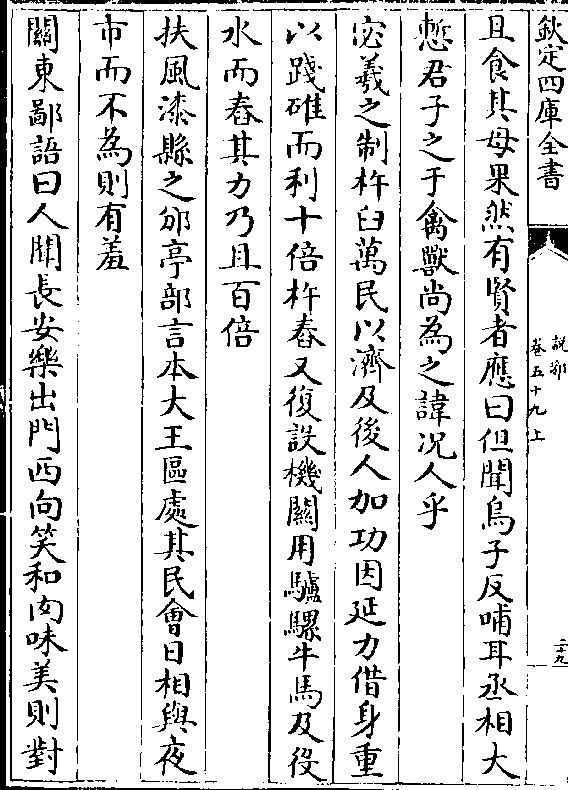 欽定四庫全書
說郛
卷五十九上
二十九
且食其母果然有賢者應曰但聞烏子反哺耳丞相大
慙君子之于禽獸尚為之諱况人乎
宓羲之制杵臼萬民以濟及後人加功因延力借身重
以踐碓而利十倍杵舂又復設機關用驢騾牛馬及役
水而舂其力乃且百倍
扶風漆縣之邠亭部言本大王區處其民會日相與夜
市而不為則有羞
關東鄙語曰人聞長安樂出門西向笑和肉味美則對